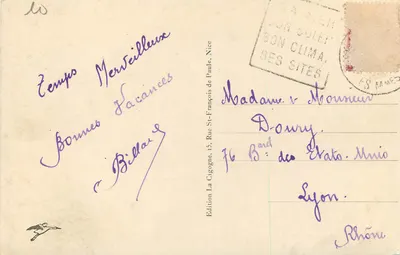 10
Temps Merveilleux
Bonnes Vacances
Billard
Edition La Cigogne, 15, Rue St-François de Paule, Nice
BON CLIMA,
SES SITES
Madame & Monsieur
Doury
76 Bard des Etats-Unis
Lyon.
Rhône